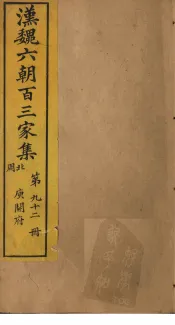 漢魏六朝百三家集
北周
庾開府
第九十二冊